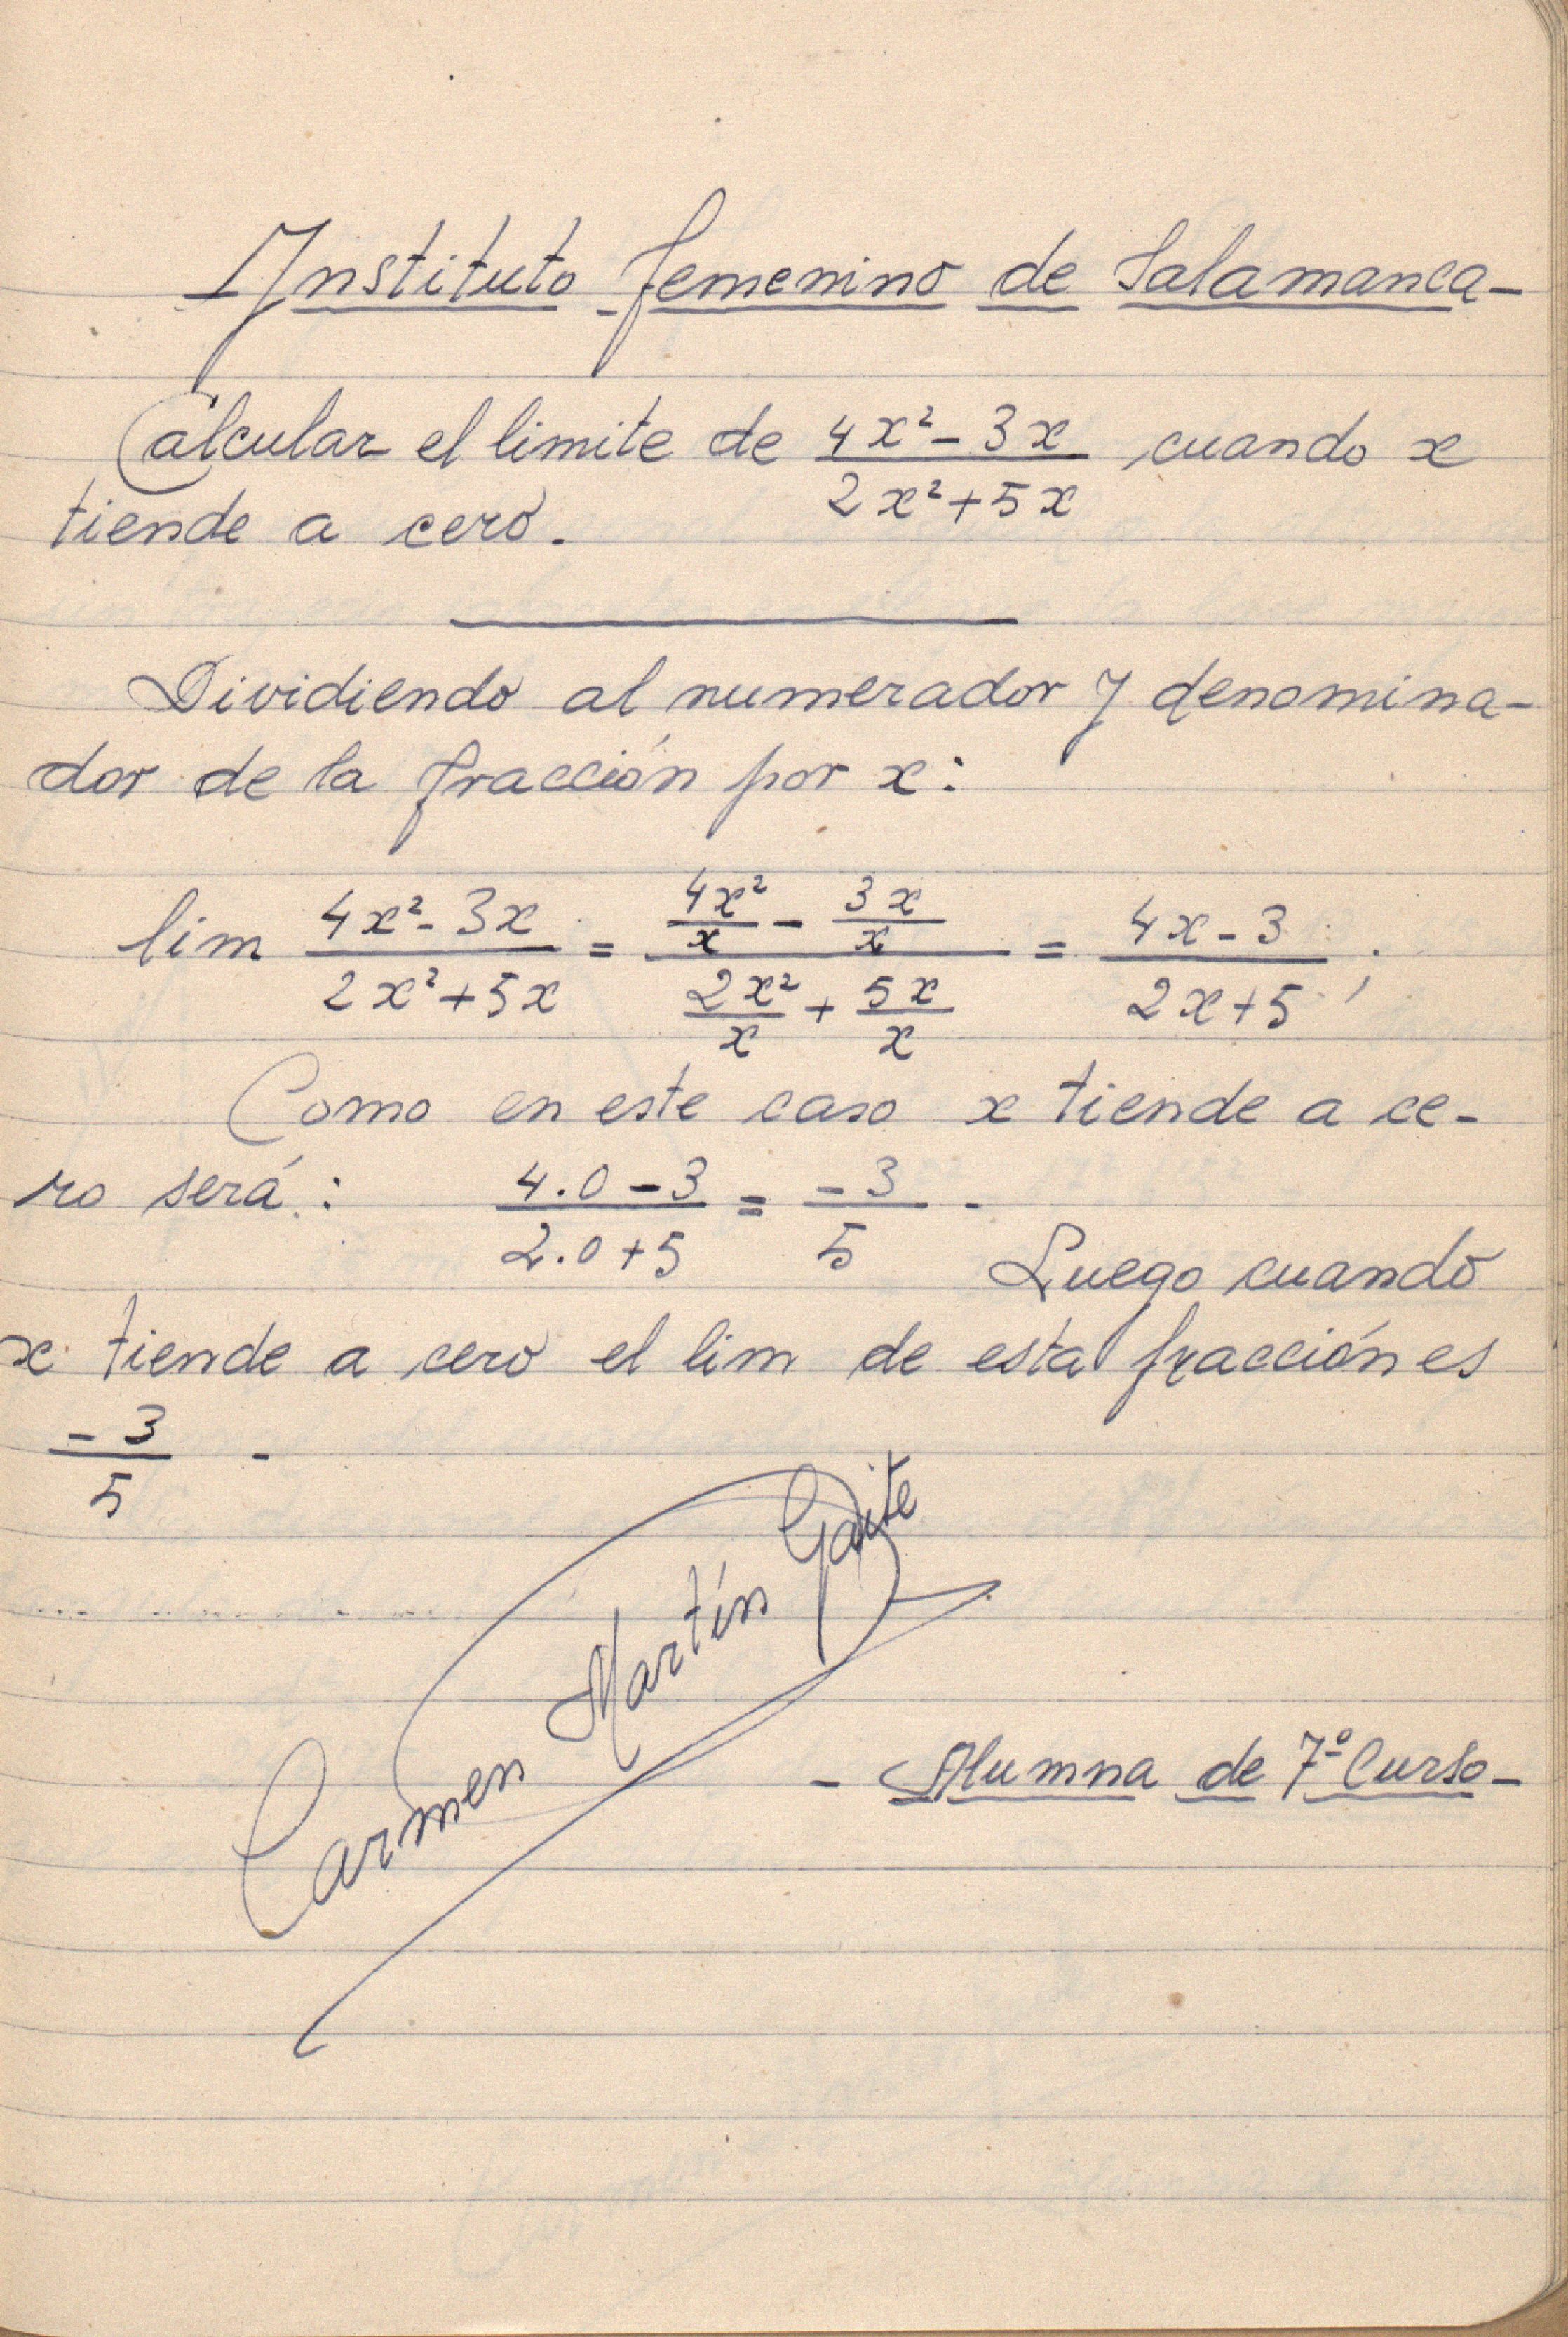 -Instituto femenino de Salamanca-
Calcular el limite de (4x² - 3x)/(2x² + 5x) cuando x
tiende a cero.
Dividiendo al numerador y denomina-
dor de la fracción por x:
lim (4x² - 3x)/(2x² + 5x) = (4x²/x - 3x/x)/(2x²/x + 5x/x) = (4x - 3)/(2x + 5);
Como en este caso x tiende a ce-
ro será: (4.0 - 3)/(2.0 + 5) = -3/5 -
Luego cuando
x tiende a cero el lim de esta fracción es
-3/5 -
Carmen Martín Gaite
- Alumna de 7º Curso -